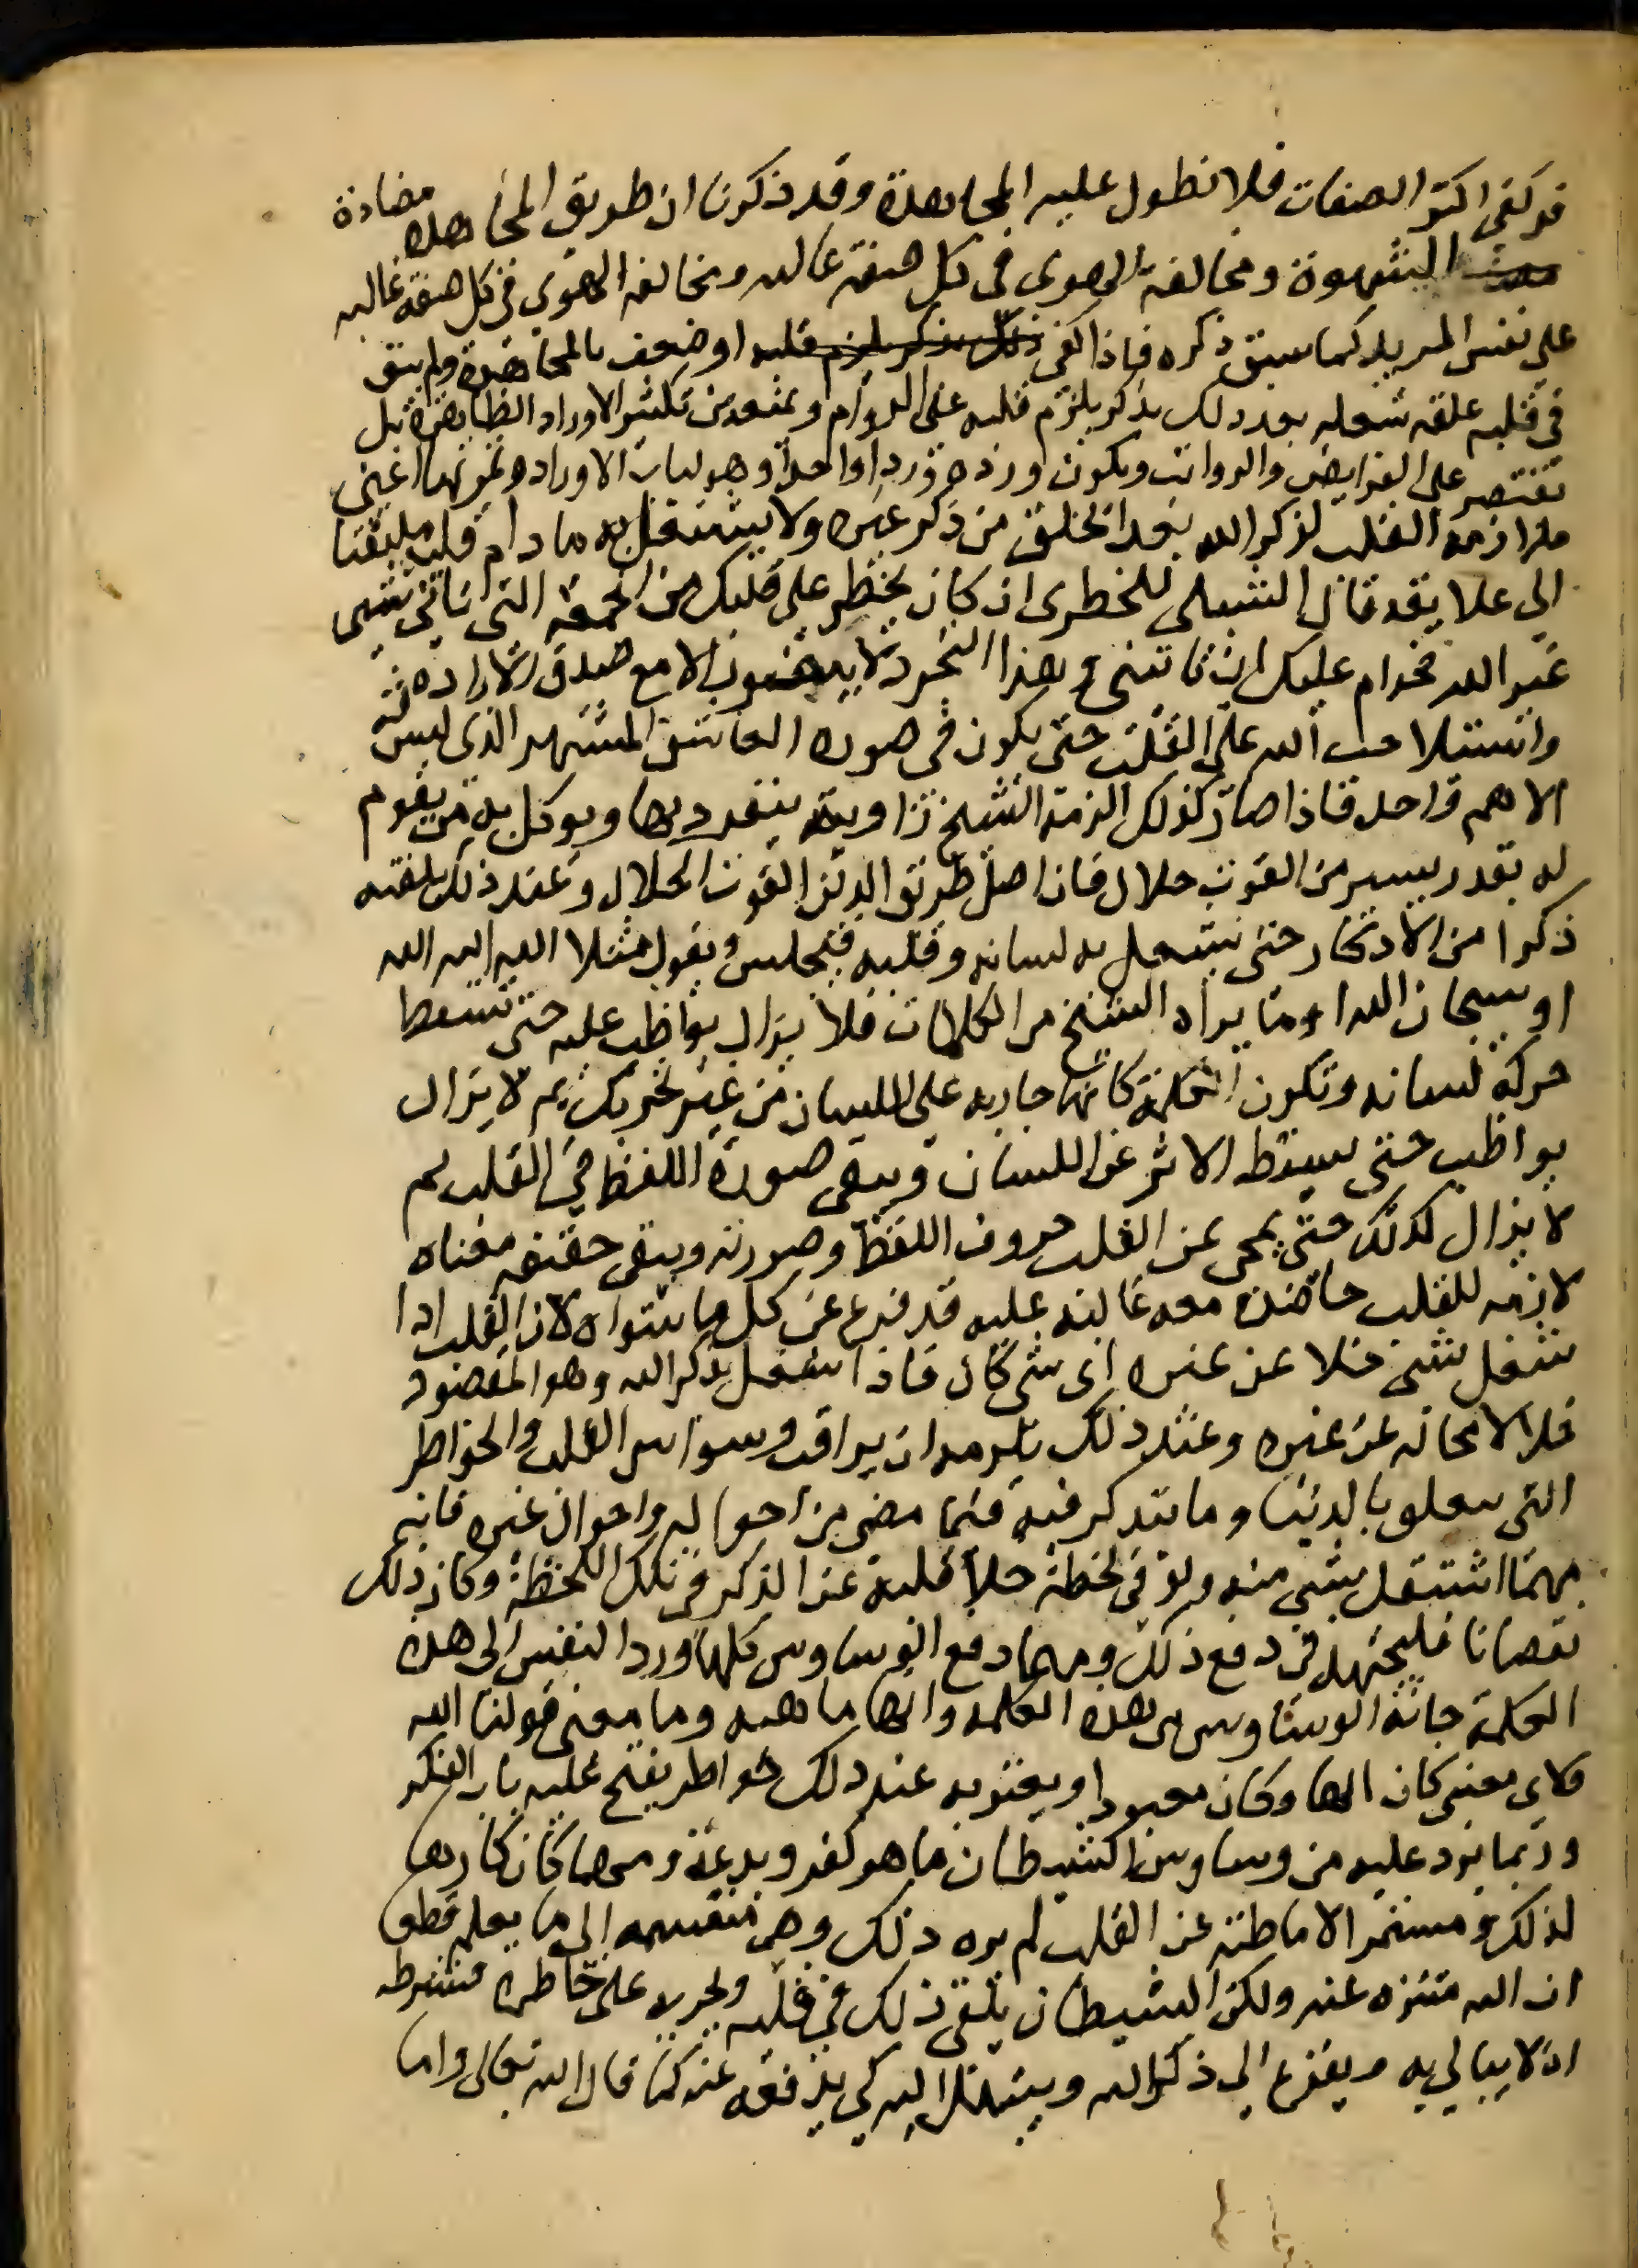 قد كفى اكثر الصفات فلا تطول عليه المجاهدة وقد ذكرنا ان طريق المجاهده مضادة
الشهوة ومخالفة الهوى في كل صفة غالبه ومخالفه الهوى في كل صفة غالبه
على نفس المريد كما سبق ذكره فاذا كفى ذلك بذكر يلزم قلبه او ضعف بالمجاهدة ولم يبق
في قلبه علقه شغله بعد ذلك بذكر يلزم قلبه على الدوام ويمنعه من تكثير الاوراد الظاهرة بل
تقتصر على الفرايض والرواتب ويكون ورده وردا واحدا وهو لباب الاوراد وثمرتها اعني
ملازمة القلب لذكر الله بعد الخلو من ذكر غيره ولا يشتغل به ما دام قلبه ملتفتا
الى علايقه قال الشبلي للحصري ان كان يخطر على قلبك من الجمعه التي تاتي شي
غير الله فحرام عليك ان تاتيني وهذا التجرد لا يحصل الا مع صدق الاراده
واستيلا حب الله على القلب حتى يكون في صورة العاشق المستهتر الذي ليس له
الا هم واحد فاذا صار كذلك الزمه الشيخ زاوية ينفرد بها ويوكل به من يقوم
له بقدر يسير من القوت حلال فان اصل طريق الدين القوت الحلال وعند ذلك يلقنه
ذكرا من الاذكار حتى يشغل به لسانه وقلبه فيجلس ويقول مثلا الله الله الله
او سبحان الله او ما يراه الشيخ من الكلمات فلا يزال يواظب عليه حتى تسقط
حركة لسانه وتكون الكلمة كانها جاريه على اللسان من غير تحريك ثم لا يزال
يواظب حتى يسقط الاثر عن اللسان ويبقى صورة اللفظ في القلب ثم
لا يزال كذلك حتى يمحى عن القلب حروف اللفظ وصورته ويبقى حقيقه معناه
لازمه للقلب حاضره معه غالبه عليه قد فرغ عن كل ما سواه لان القلب اذا
شغل بشي خلا عن غيره اي شي كان فاذا اشتغل بذكر الله وهو المقصود
خلا لا محاله عن غيره وعند ذلك يلزمه ان يراقب وسواس القلب والخواطر
التي تتعلق بالدنيا وما يتذكر فيه فيما مضى من احواله واحوال غيره فانه
مهما اشتغل بشي منه ولو في لحظة خلا قلبه عن الذكر في تلك اللحظة وكان ذلك
نقصانا فليجتهد في دفع ذلك ومهما دفع الوساوس كلها ورد النفس الى هذه
الكلمة جاته الوساوس من هذه الكلمه وانها ما هيه وما معنى قولنا الله
ولاي معنى كان الها وكان معبودا ويعتريه عند ذلك خواطر يفتح عليه باب الفكر
وربما يرد عليه من وساوس الشيطان ما هو كفر وبدعة ومهما كان كارها
لذلك ومستمرا لاماطته عن القلب لم يره ذلك وهي منقسمه الى ما يعلم قطعا
ان الله متنزه عنه ولكن الشيطان يلقي ذلك في قلبه ويجريه على خاطره فشرطه
ان لا يبالي به ويفزع الى ذكر الله ويبتهل اليه كي يدفعه عنه كما قال الله تعالى واما